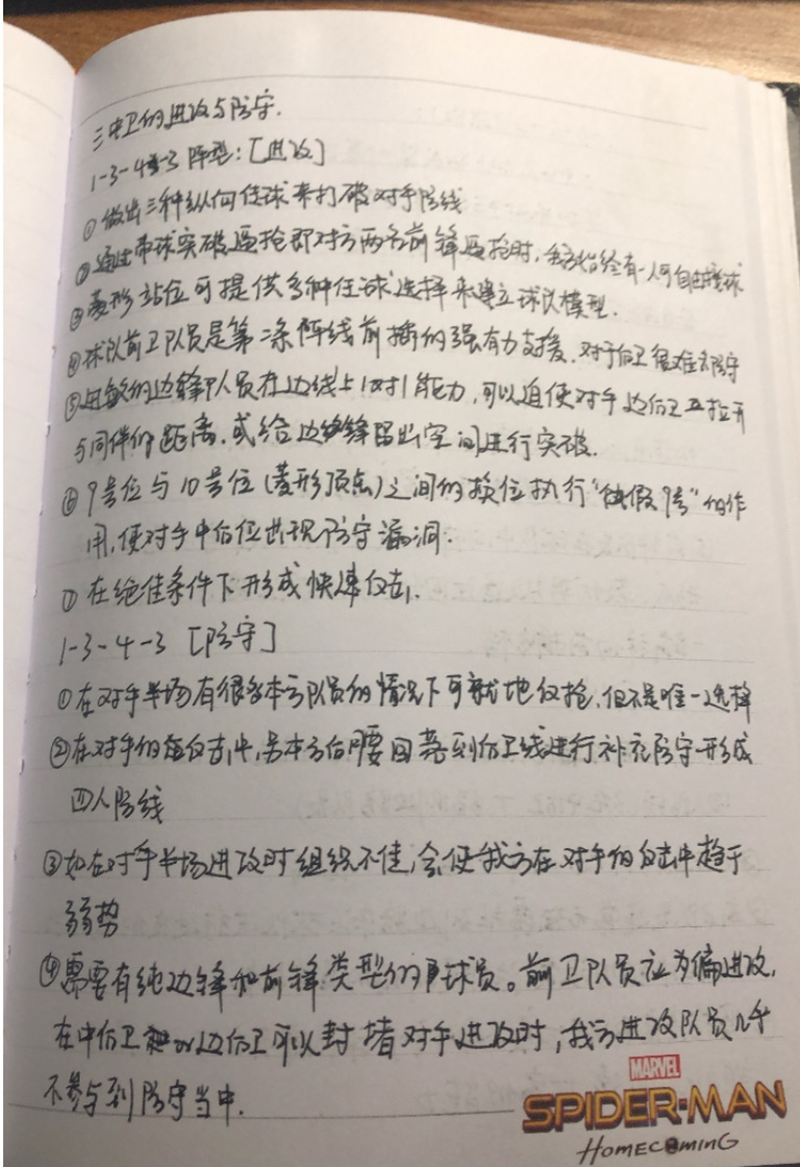 三中卫的进攻与防守.
1-3-4-3 阵型:[进攻]
① 做出三种纵向传球来打破对手防线
② 通过带球突破逼抢即对方两名前锋逼抢时,我方始终有一人可自由接球
③ 菱形站位可提供多种传球选择来建立球队模型.
④ 球队前卫队员是第二条阵线前插的强有力支援,对于后卫很难去防守
⑤ 边锋队员在边线上1对1能力,可以迫使对手边后卫拉开
与同伴的距离,或给边锋留出空间进行突破.
⑥ 9号位与10号位(菱形顶点)之间的换位执行“伪假9号”的作
用,使对手中后位出现防守漏洞.
⑦ 在绝佳条件下形成快速反击.
1-3-4-3 [防守]
① 在对手半场有很多本方队员的情况下可就地反抢,但不是唯一选择
② 在对手的反击中,本方后腰回落到后卫线进行补充防守形成
四人防线
③ 如在对手半场进攻时组织不佳,会使我方在对手的反击中趋于
弱势
④ 需要有纯边锋和前锋类型的球员。前卫队员应为偏进攻,
在中后卫or边后卫可以封堵对手进攻时,我方进攻队员几乎
不参与到防守当中.
MARVEL
SPIDER-MAN
HOMECOMING